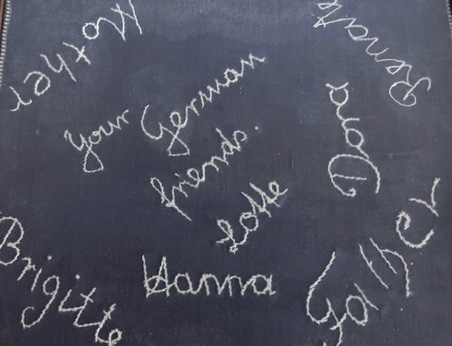 Mother
Renate
your German
friends.
Dora
Lotte
Hanna
Brigitte
Father